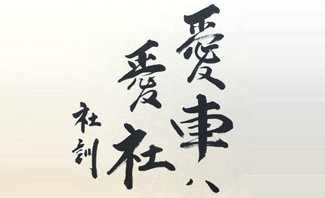 愛車ハ
愛社
社訓